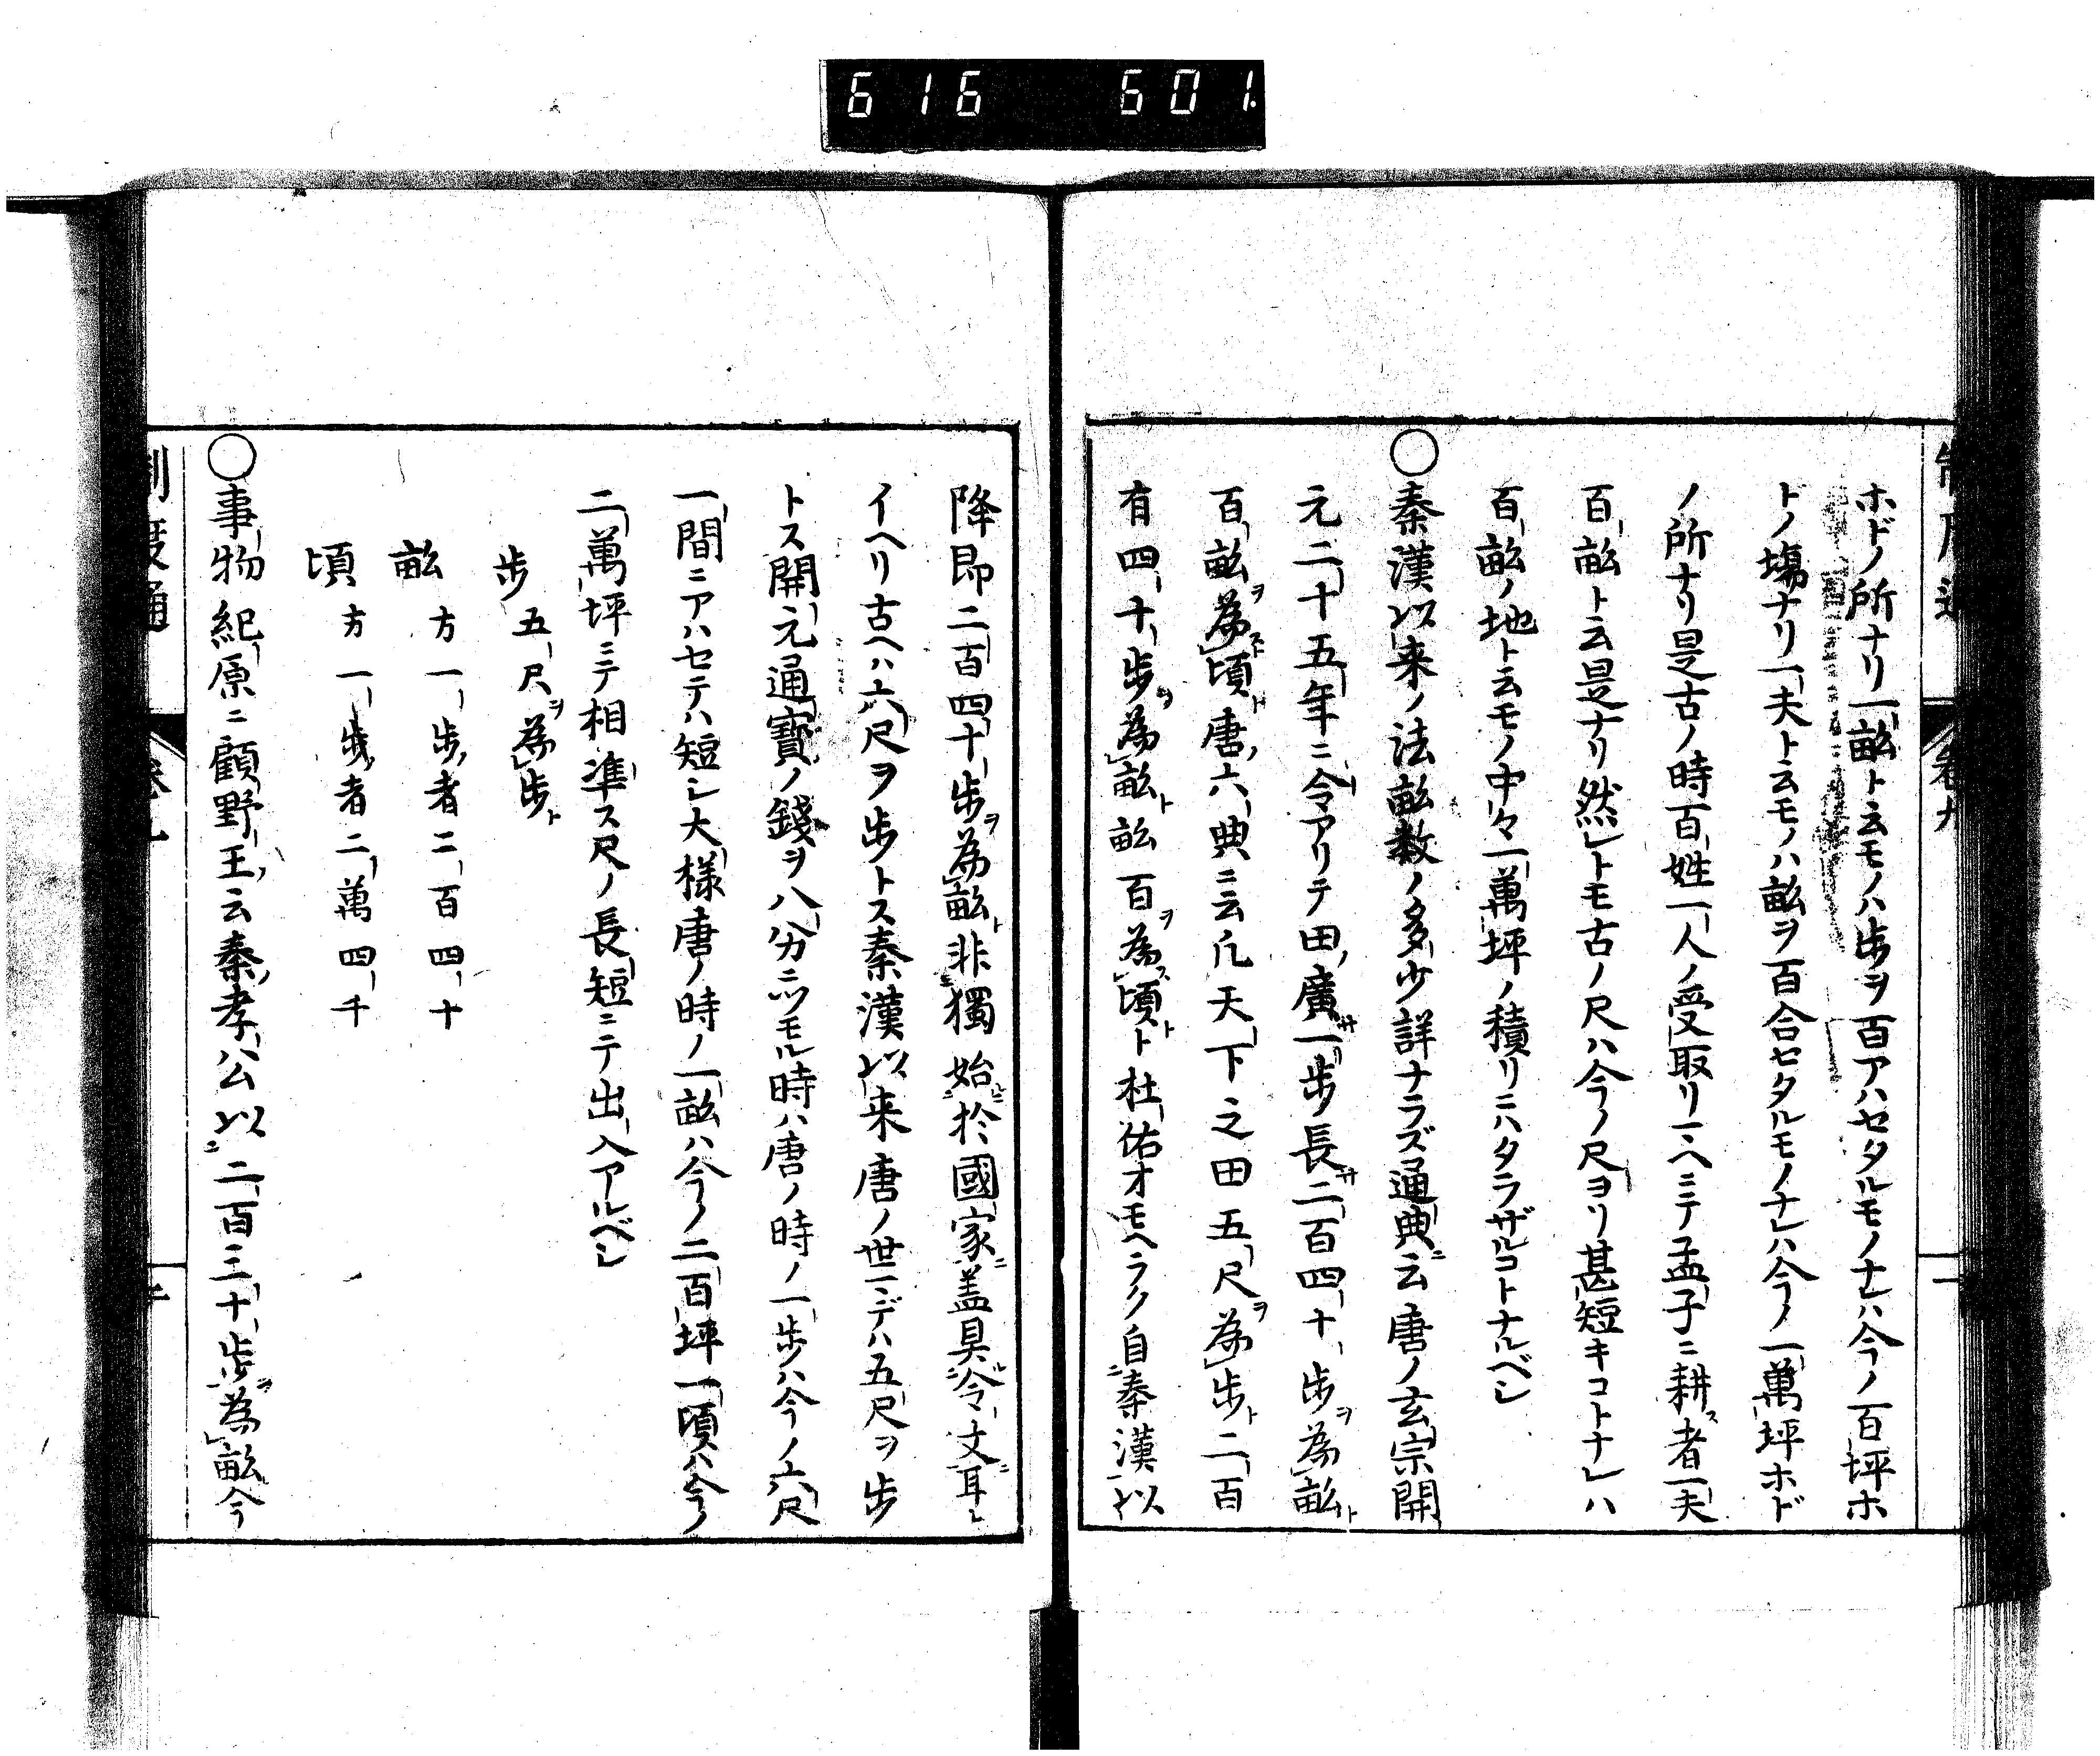 616 601
ホドノ所ナリ一畝ト云モノハ歩ヲ百アハセタルモノナレハ今ノ一百坪ホ
トノ塲ナリ一夫ト云モノハ畝ヲ百合セタルモノナレハ今ノ一萬坪ホド
ノ所ナリ是古ノ時百姓一人ノ受取リ一ヘニテ孟子ニ耕ス者一夫
百畝ト云是ナリ然レトモ古ノ尺ハ今ノ尺ヨリ甚短キコトナレハ
百畝ノ地ト云モノ中々一萬坪ノ積リニハタラザルコトナルベシ
〇秦漢以来ノ法畝数ノ多少詳ナラズ通典ニ云唐ノ玄宗開
元二十五年ニ令アリテ田廣サ一歩長サ二百四十歩ヲ為畝ト
百畝ヲ為ス頃ト唐六典ニ云凡天下之田五尺ヲ為歩ト二百
有四十歩ヲ為畝ト畝百ヲ為ス頃ト杜佑オモヘラク自秦漢以
降即二百四十歩ヲ為畝ト非獨始於國家ニ盖具令文ニ耳ト
イヘリ古ヘハ六尺ヲ歩トス秦漢以来唐ノ世マデハ五尺ヲ歩
トス開元通寶ノ錢ヲ八分ニツモル時ハ唐ノ時ノ一歩ハ今ノ六尺
一間ニアハセテハ短シ大様唐ノ時ノ一畝ハ今ノ二百坪一頃ハ今ノ
二萬坪ニテ相準ス尺ノ長短ニテ出入アルベシ
歩 五尺ヲ為歩ト
畝 方一歩者二百四十
頃 方一歩者二萬四千
〇事物紀原ニ顧野王云秦孝公以二百三十歩ヲ為畝今
制度通